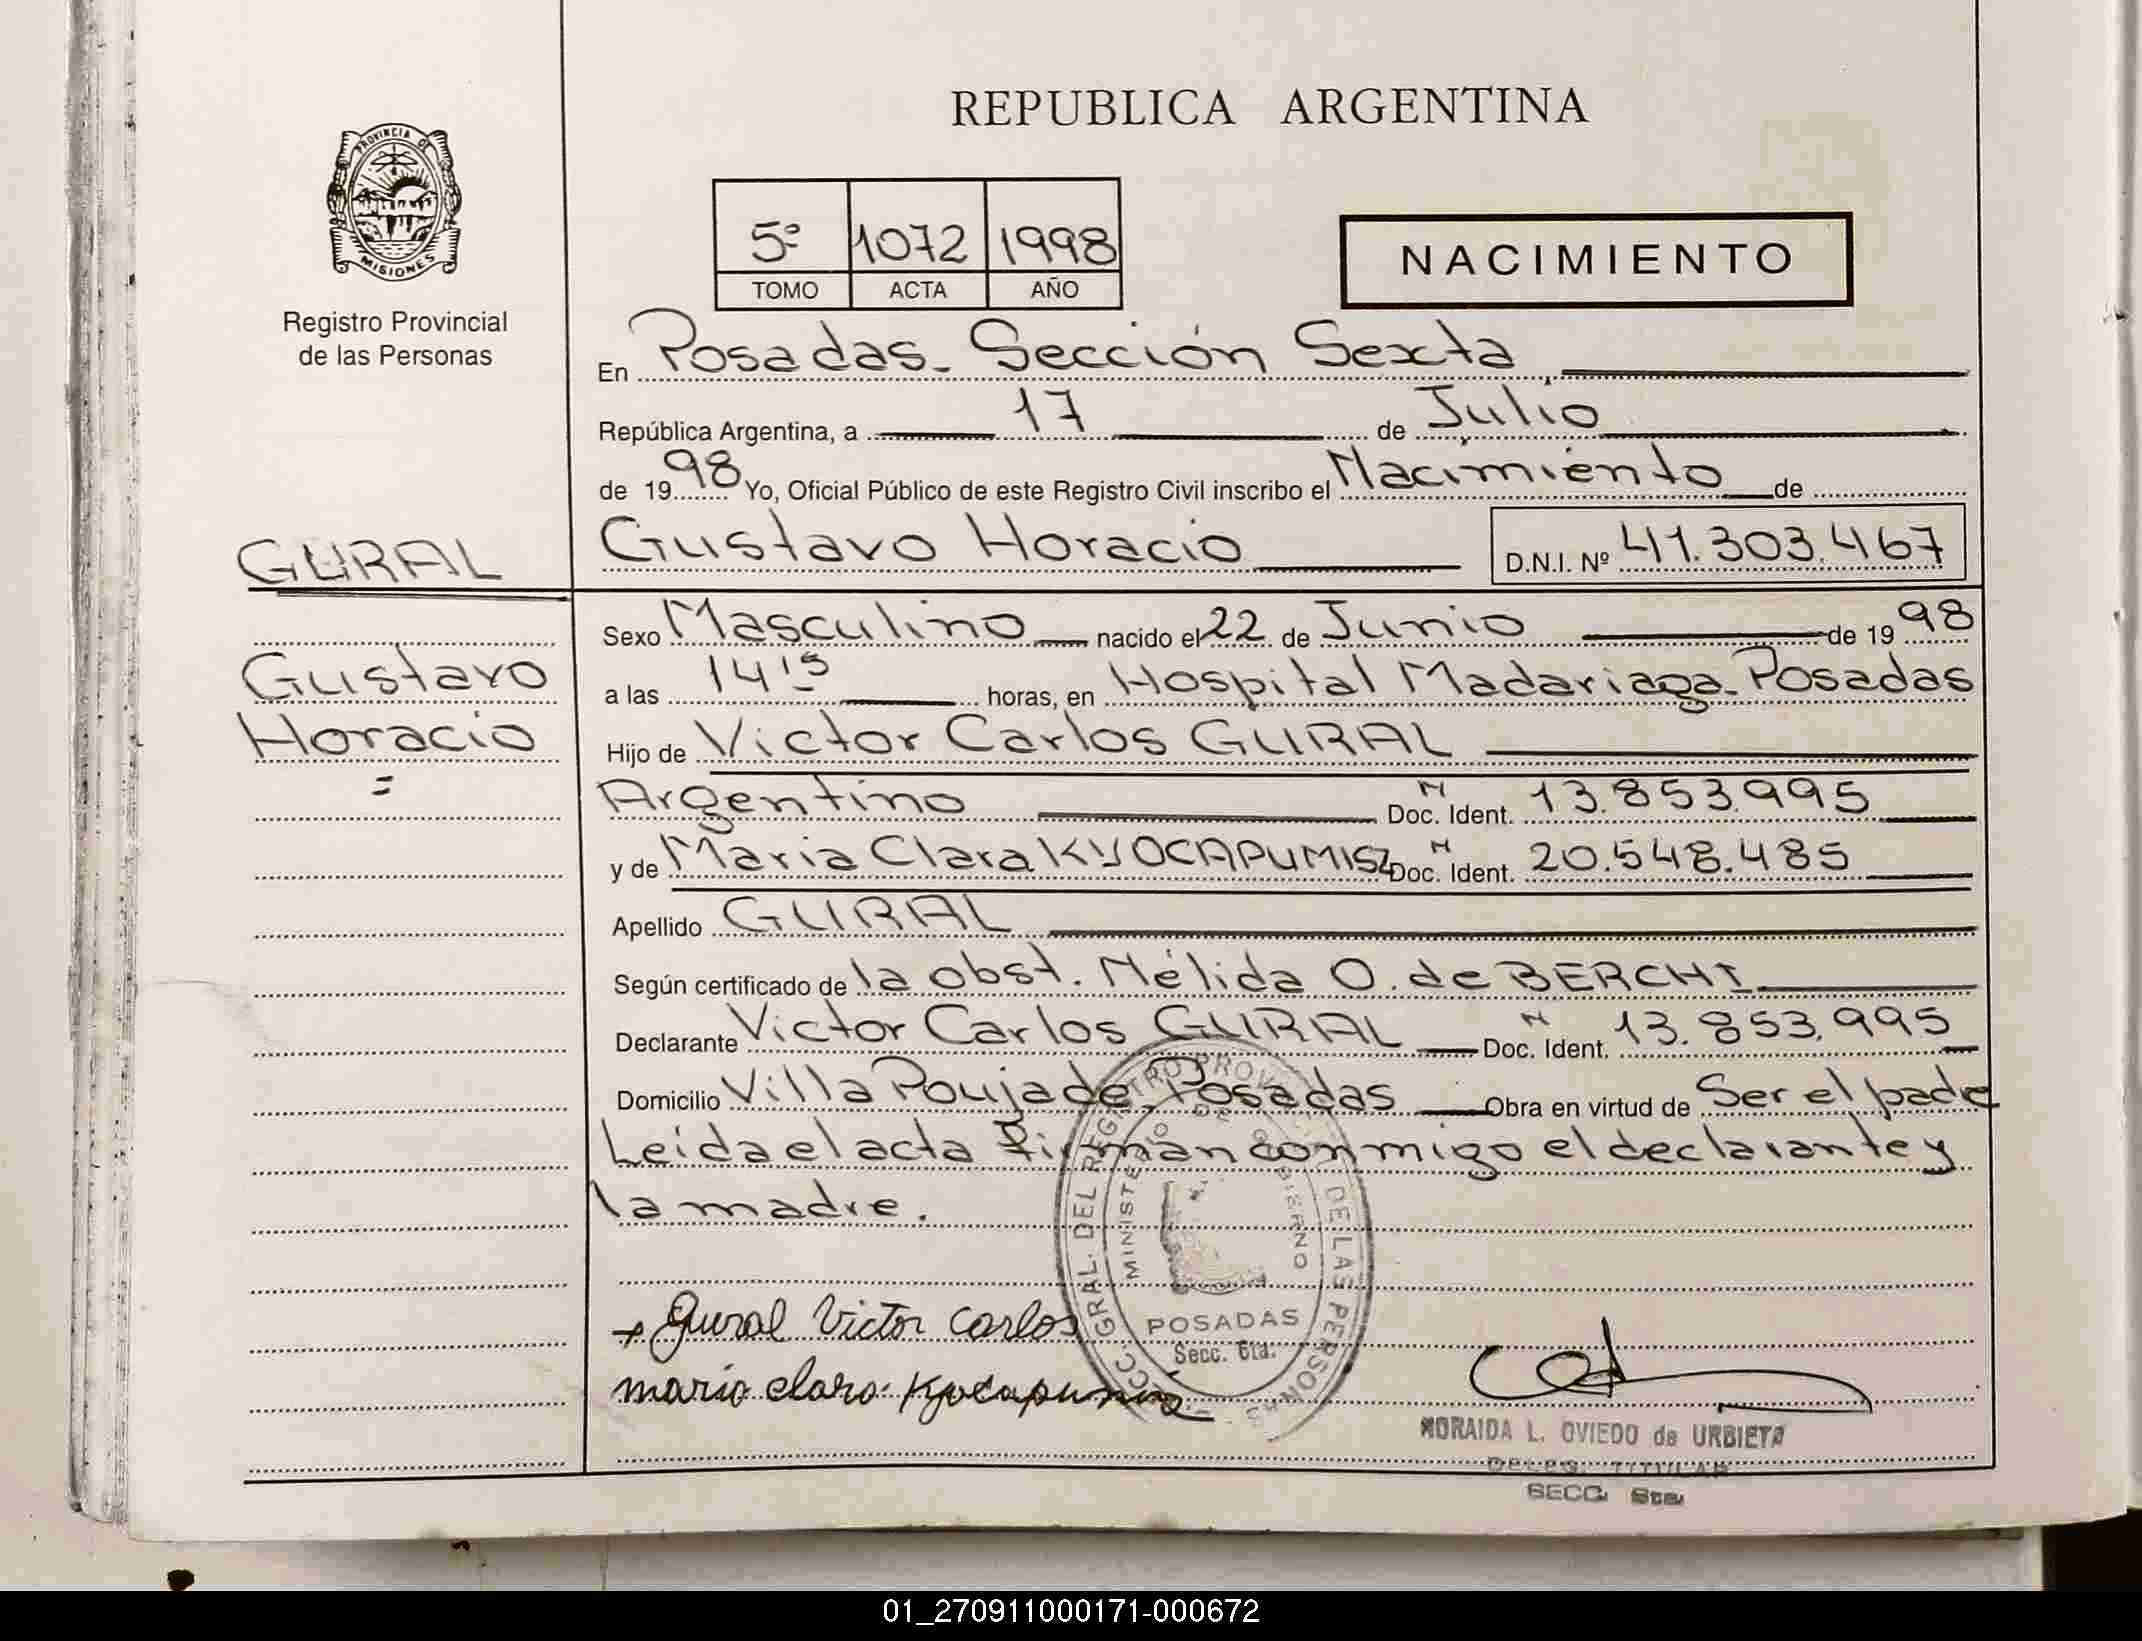 REPUBLICA ARGENTINA
PROVINCIA DE
MISIONES
Registro Provincial
de las Personas
5º 1072 1998
TOMO ACTA AÑO
NACIMIENTO
En Posadas. Sección Sexta
República Argentina, a 17 de Julio
de 1998 Yo, Oficial Público de este Registro Civil inscribo el Nacimiento de
GURAL
Gustavo Horacio D.N.I. Nº 41.303.467
Sexo Masculino nacido el 22 de Junio de 1998
Gustavo
a las 14'15 horas, en Hospital Madariaga. Posadas
Horacio
=
Hijo de Victor Carlos GURAL
Argentino Doc. Ident. N 13.853.995
y de Maria Clara KYOCAPUMISZ Doc. Ident. N 20.548.485
Apellido GURAL
Según certificado de la obst. Nélida O. de BERCHI
Declarante Victor Carlos GURAL Doc. Ident. N 13.853.995
Domicilio Villa Poujade. Posadas Obra en virtud de Ser el padre
Leida el acta firman conmigo el declarante y
la madre.
GRAL. DEL REGISTRO PROVINCIAL DE LAS PERSONAS
MINISTERIO DE GOBIERNO
POSADAS
Secc. 6ta.
Gural Victor Carlos
maria clara
NORAIDA L. OVIEDO de URBIETA
DELEG. TITULAR
SECC. 6ta.
01_270911000171-000672